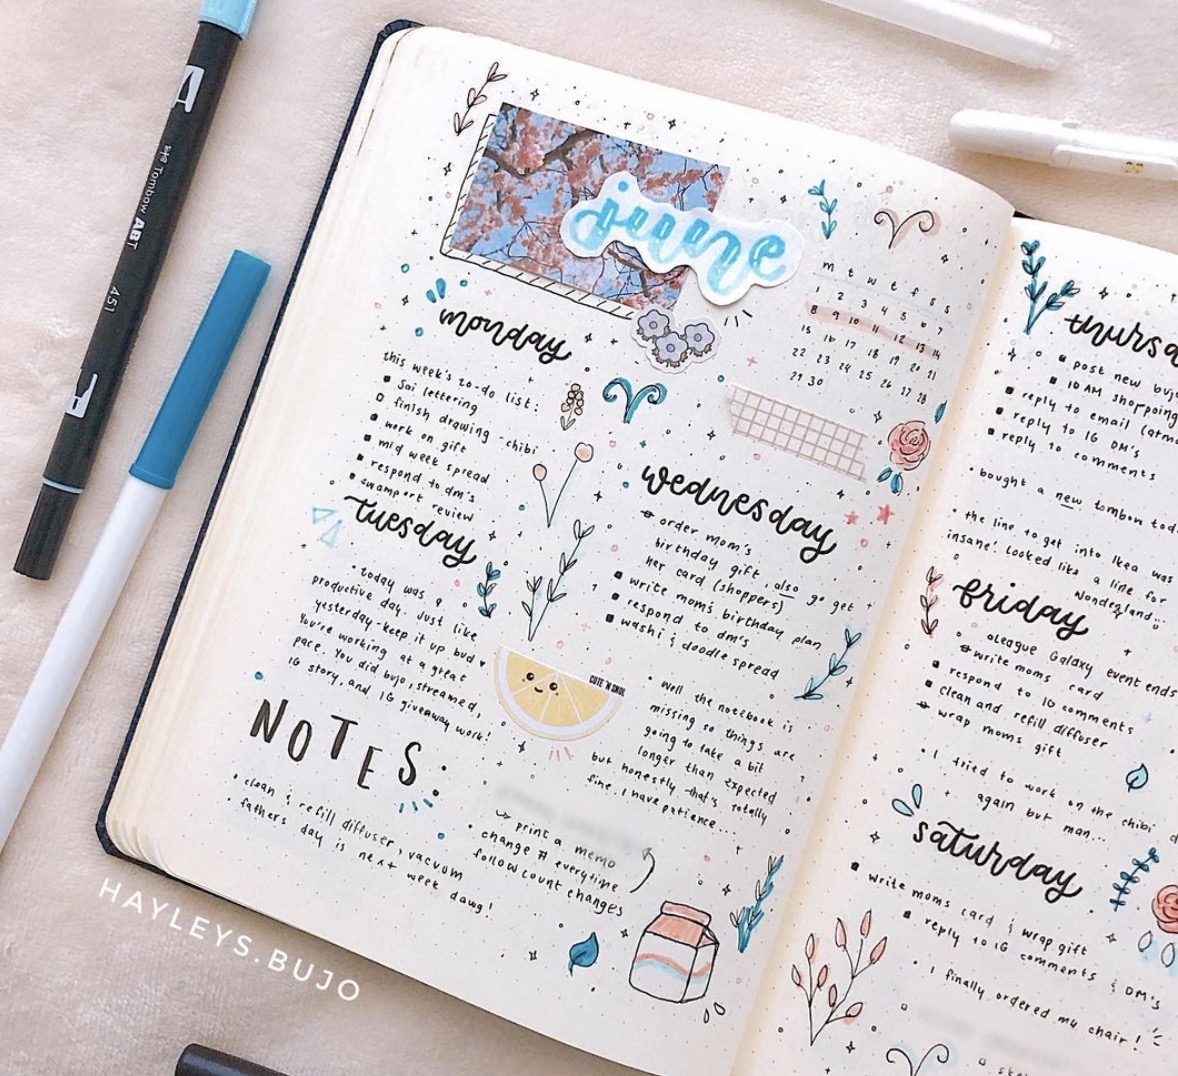 june
m t w t f s s
1 2 3 4 5 6 7
8 9 10 11 12 13 14
15 16 17 18 19 20 21
22 23 24 25 26 27 28
29 30
monday
this week's to-do list:
Sai lettering
finish drawing - chibi
work on gift
mid week spread
respond to dm's
swamport review
tuesday
• today was a
productive day. just like
yesterday - keep it up bud ♥
You're working at a great
pace. You did bujo, streamed,
IG story, and IG giveaway work!
NOTES:
• clean & refill diffuser, vacuum
fathers day is next week dawg!
→ print a memo
• change # everytime
follow count changes
wednesday
order mom's
birthday gift, also go get
her card (shoppers)
write mom's birthday plan
respond to dm's
washi & doodle spread
• well the notebook is
missing so things are
going to take a bit
longer than expected
but honestly that's totally
fine, I have patience...
CUTE 'N
thursd
post new bujo
10 AM shorpoing
reply to email (atm
reply to IG DM's
reply to comments
• bought a new tombow tod
• the line to get into Ikea was
insane! Looked like a line for
Wonderland...
friday
oLeague Galaxy event ends
write moms card
respond to IG comments
clean and refill diffuser
wrap moms gift
• I tried to work on the chibi d
again but man...
saturday
write moms card & wrap gift
reply to IG comments & DM's
• I finally ordered my chair!
Tombow ABT
451
HAYLEYS.BUJO